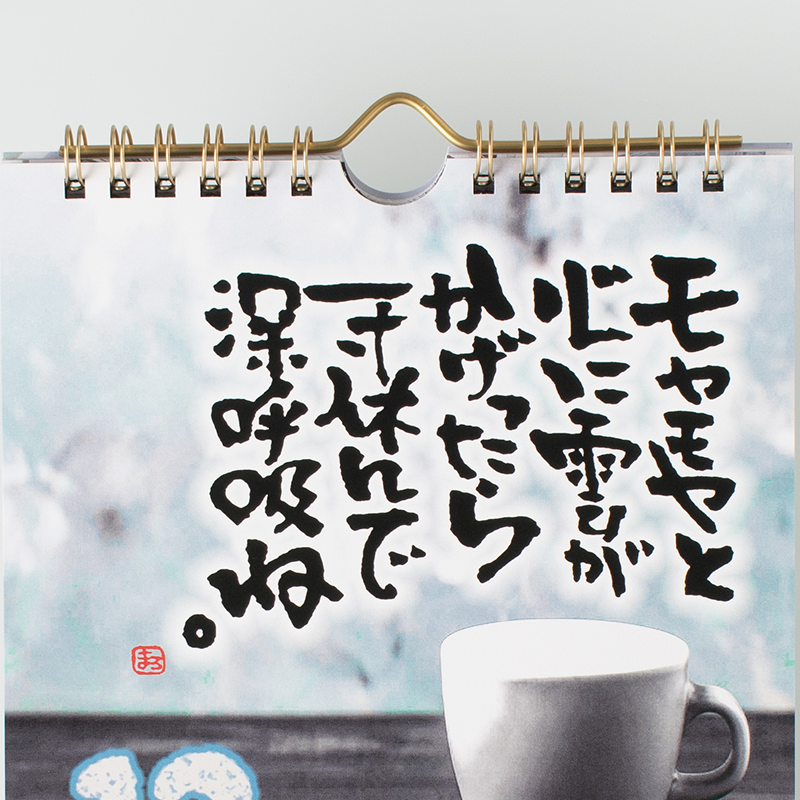 モヤモヤと
心に雲が
かげったら
一寸休んで
深呼吸ね。
まろ